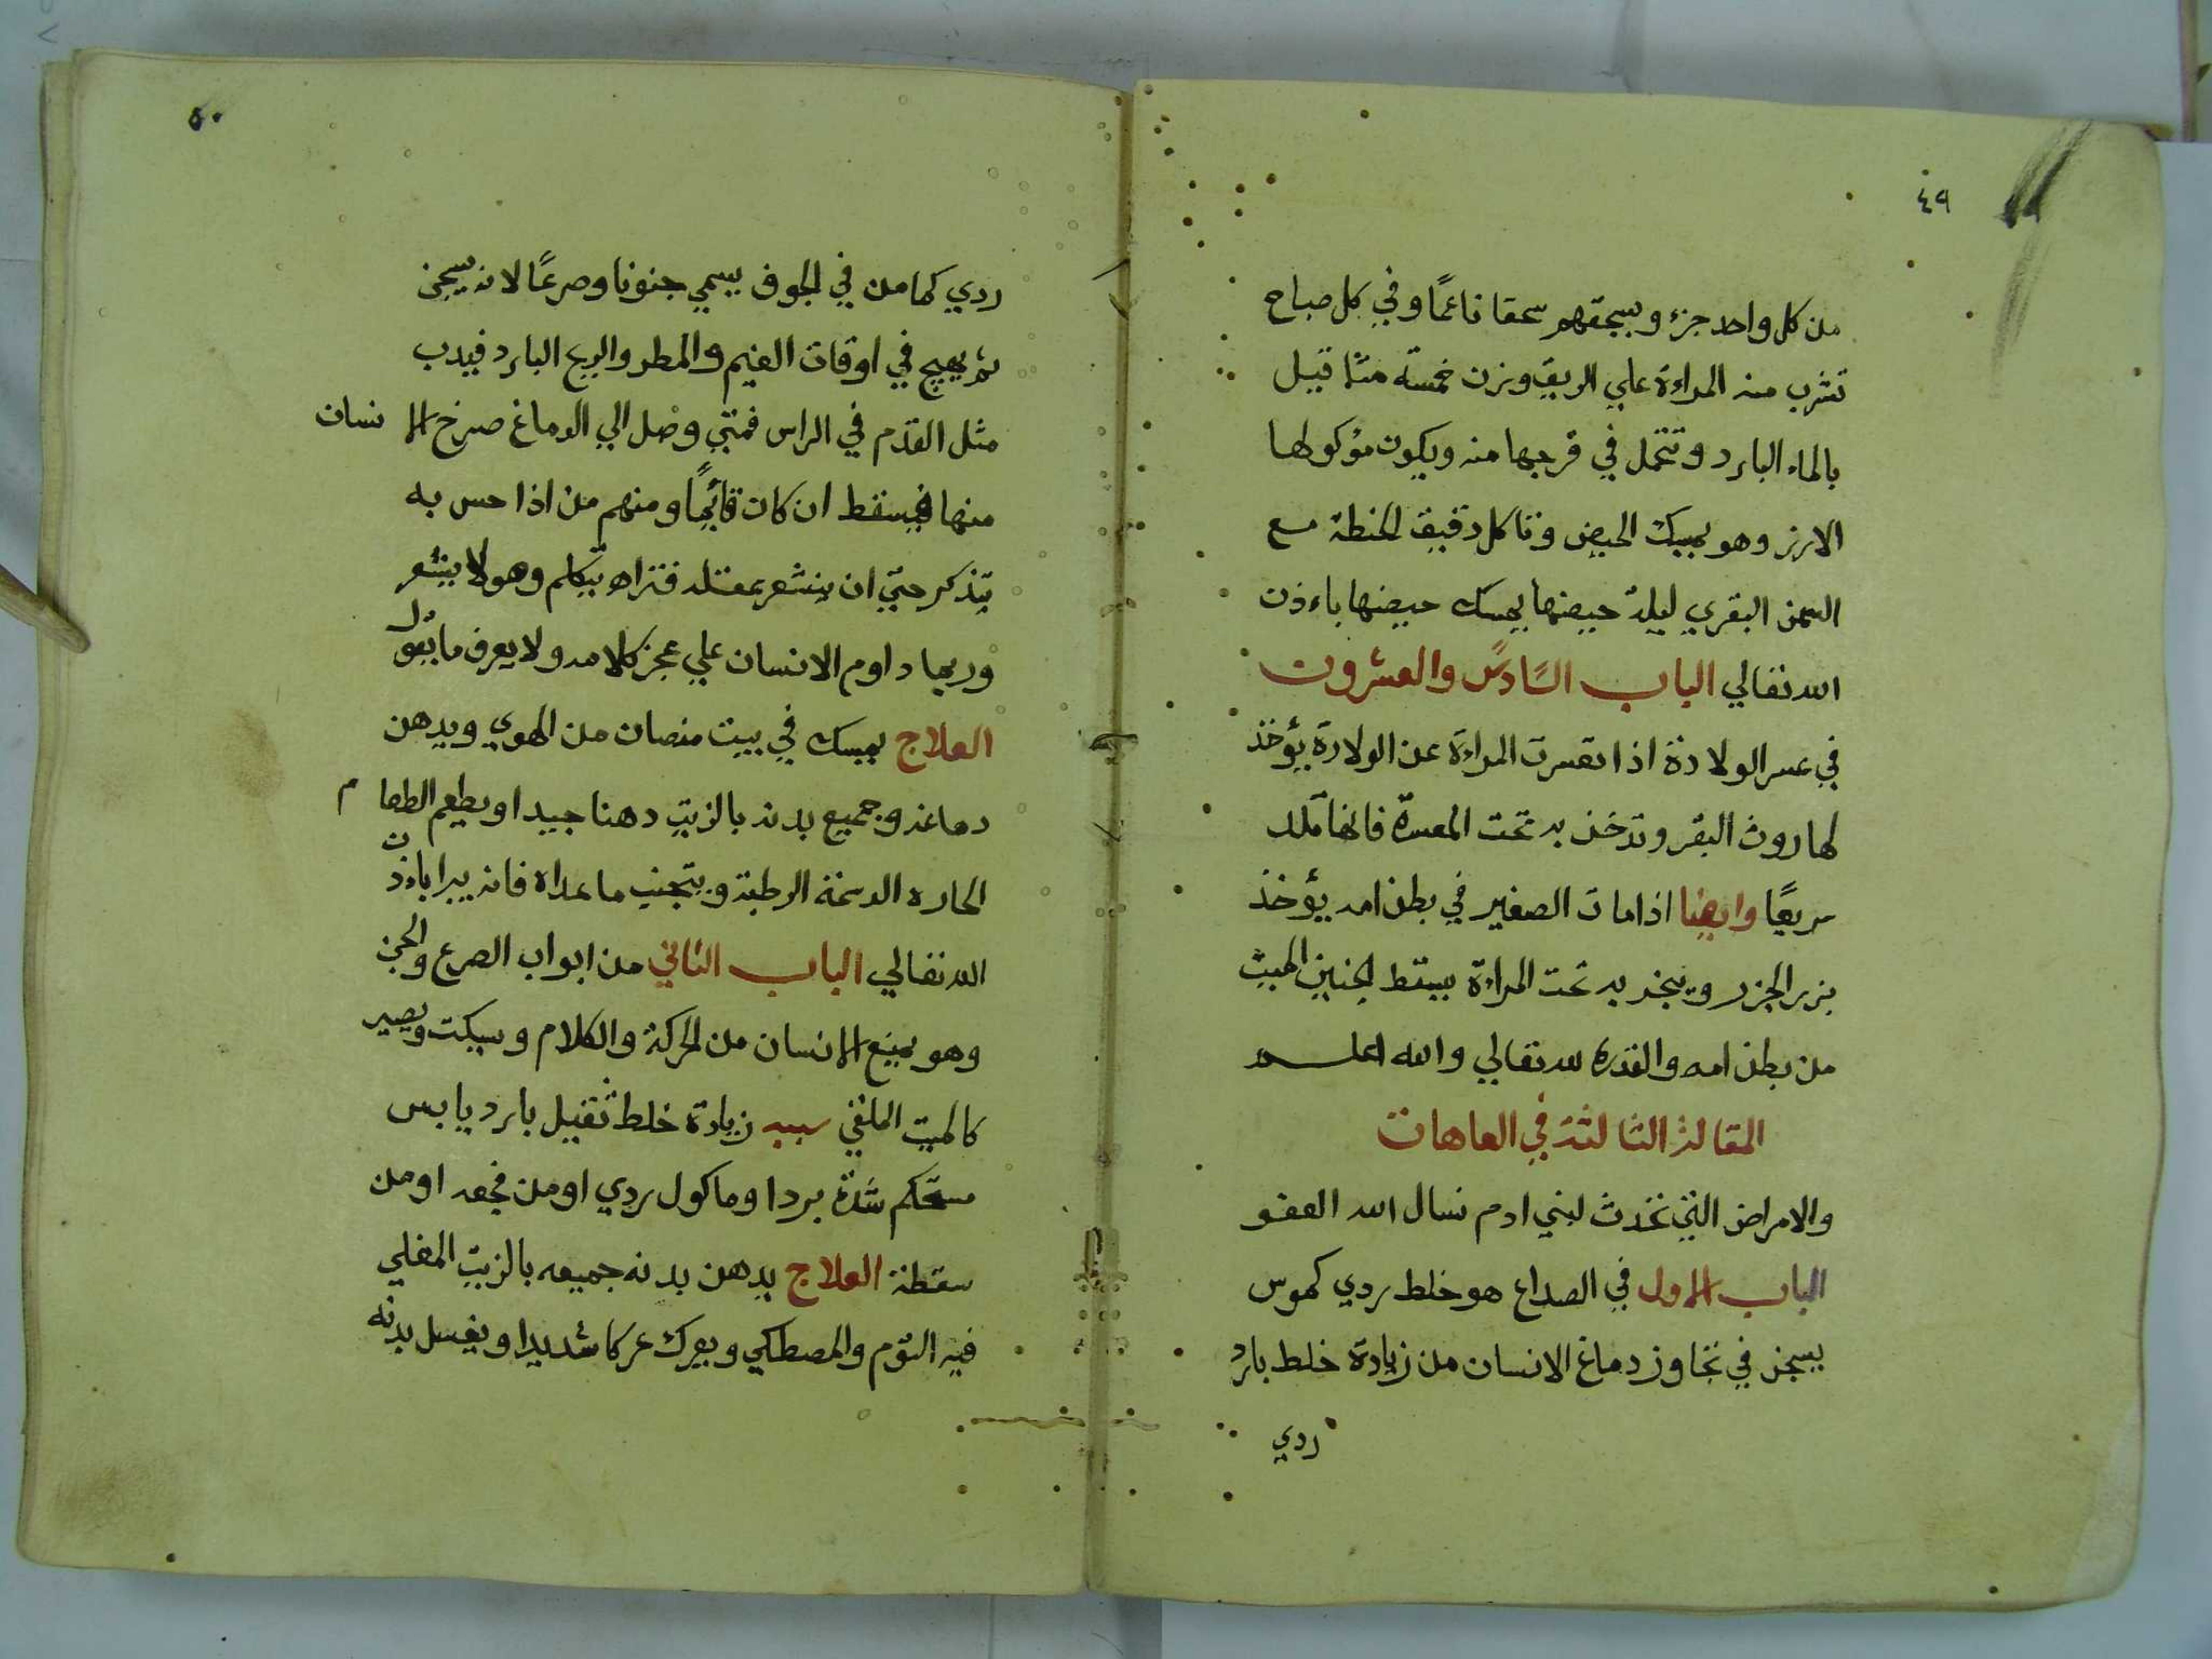 ٤٩
من كل واحد جزء ويسحقهم سحقا ناعمًا وفي كل صباح
تشرب منه المراءة علي الريق وزن خمسة مثاقيل
بالماء البارد وتتحمل في فرجها منه ويكون مؤكولها
الارز وهو يمسك الحيض وتاكل دقيق الحنطة مع
السمن البقري ليلة حيضها يمسك حيضها باءذن
الله تعالي الباب السَادس والعشرون
في عسر الولادة اذا تعسرت المراءة عن الولادة يؤخذ
لها روث البقر وتدخن به تحت المعسرة فانها تلد
سريعًا وايضا اذا مات الصغير في بطن امه يؤخذ
بزر الجزر ويبخر به تحت المراءة يسقط الجنين الميت
من بطن امه والقدرة لله تعالي والله اعلم
المقالة الثالثة في العاهات
والامراض التي تحدث لبني ادم نسال الله العفو
الباب الاول في الصداع هو خلط ردي كهوس
يسجن في تجاوز دماغ الانسان من زيادة خلط بارد
ردي
٥٠
ردي كامن في الجوف يسمي جنونا وصرعًا لانه يسجن
ثم يهيج في اوقات الغيم والمطر والريح البارد فيدب
مثل القدم في الراس فمتي وصل الي الدماغ صرخ الانسان
منها فيسقط ان كان قائمًا ومنهم من اذا حس به
يتذكر حتي ان يشعر بمقتله فتراه يتكلم وهو لا يشعر
وربما داوم الانسان علي عجز كلامه ولا يعرف ما يقول
العلاج يمسك في بيت منصان من الهوي ويدهن
دماغه وجميع بدنه بالزيت دهنا جيدا ويطعم الطعام
الحاره الدسمة الرطبة ويتجنب ما عداه فانه يبرا باءذن
الله تعالي الباب الثاني من ابواب الصرع والجن
وهو يمنع الانسان من الحركة والكلام ويسكت ويصير
كالميت الملقي سببه زيادة خلط ثقيل بارد يابس
مستحكم شدة برد او ماكول ردي او من فجعه او من
سقطة العلاج يدهن بدنه جميعه بالزيت المغلي
فيه الثوم والمصطكي ويعرك عركا شديدا ويغسل بدنه